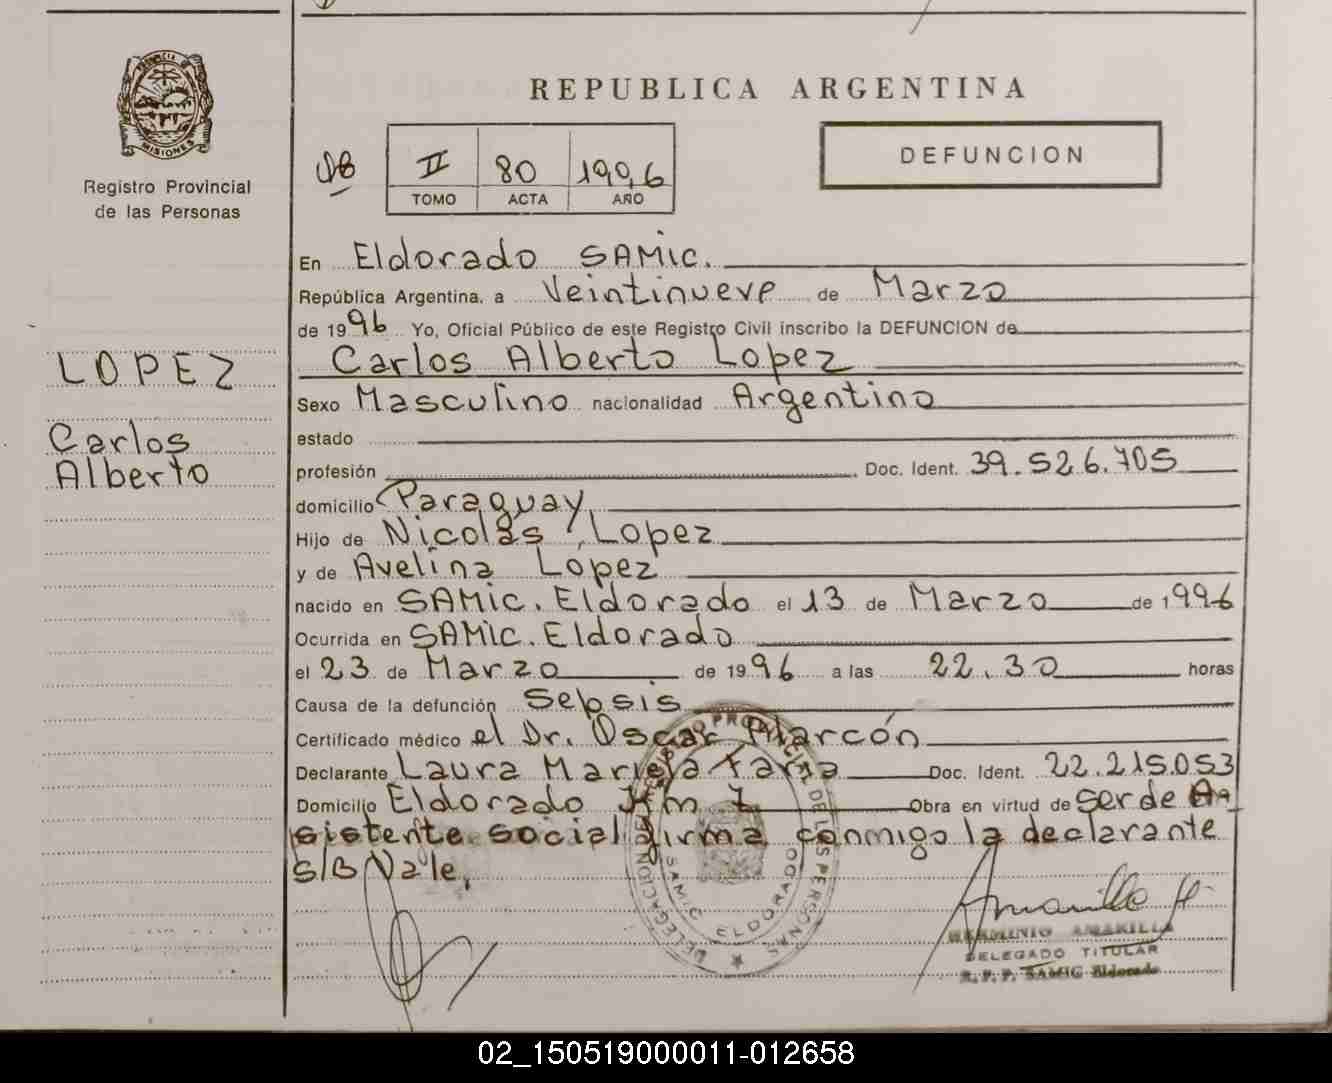 PROVINCIA DE
MISIONES
Registro Provincial
de las Personas
LOPEZ
Carlos
Alberto
REPUBLICA ARGENTINA
DEFUNCION
II 80 1996
TOMO ACTA AÑO
En Eldorado SAMIC.
República Argentina, a Veintinueve de Marzo
de 1996 Yo, Oficial Público de este Registro Civil inscribo la DEFUNCION de
Carlos Alberto Lopez
Sexo Masculino nacionalidad Argentino
estado
profesión Doc. Ident. 39.526.705
domicilio Paraguay
Hijo de Nicolás Lopez
y de Avelina Lopez
nacido en SAMIC. Eldorado el 13 de Marzo de 1996
Ocurrida en SAMIC. Eldorado
el 23 de Marzo de 1996 a las 22.30 horas
Causa de la defunción Sepsis
Certificado médico el Dr. Oscar Alarcón
Declarante Laura Mariela Faria Doc. Ident. 22.215.053
Domicilio Eldorado Km 7 Obra en virtud de ser de As
sistente social firma conmigo la declarante
S/B Vale.
DELEGACION DEL REGISTRO PROVINCIAL DE LAS PERSONAS
SAMIC ELDORADO
Amarilla H.
HERMINIO AMARILLA
DELEGADO TITULAR
R. P. P. SAMIC Eldorado
02_150519000011-012658